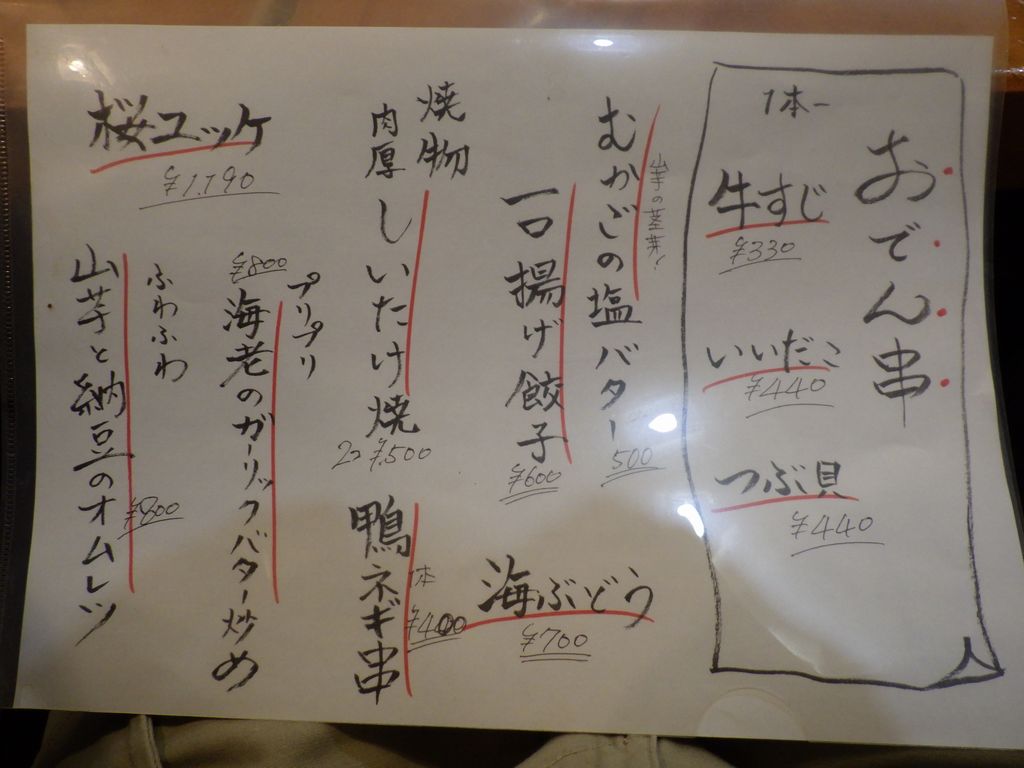 おでん串
1本ー
牛すじ
¥330
いいだこ
¥440
つぶ貝
¥440
むかごの塩バター
500
一口揚げ餃子
¥600
海ぶどう
¥700
焼物
肉厚
しいたけ焼
2コ ¥500
鴨ネギ串
1本
¥400
桜ユッケ
¥1,190
プリプリ
海老のガーリックバター炒め
¥800
ふわふわ
山芋と納豆のオムレツ
¥800